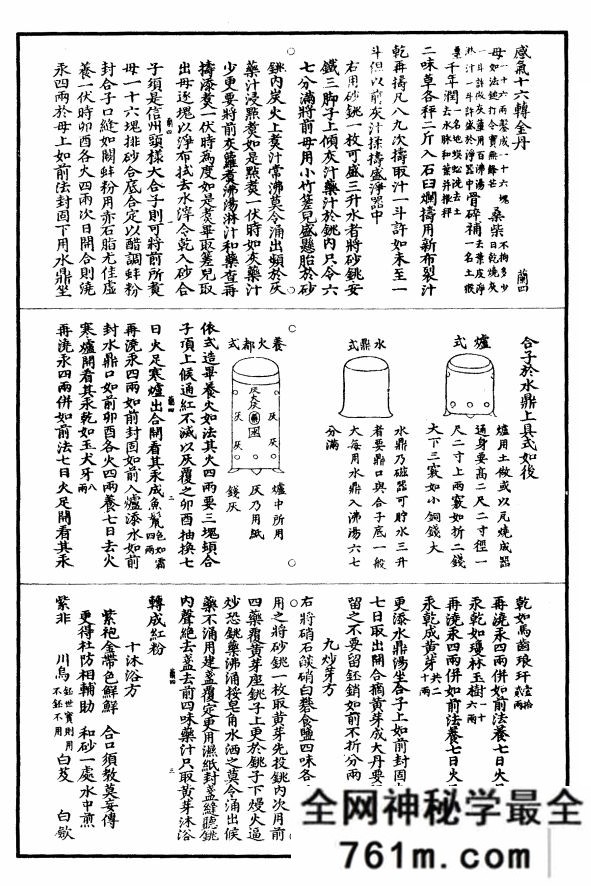 感氣十六轉金丹 蘭四
母一十六兩鏨成一十六塊 桑柴不拘多少日乾燒灰
一斗許灰羅用百沸湯淋汁一斗許盛於淨器中 骨碎補去葉皮淨一名土猴
薑千年潤一名地蜈蚣洗去土去水脉和葉并根秤
二味草各秤二斤入石臼爛擣用新布裂汁
乾再擣凡八九次擣取汁一斗許如未至一
斗但以前灰汁揉擣盛淨器中
右用砂銚一枚可盛三升水者將砂銚安
鐵三脚子上傾灰汁藥汁於銚內只令六
七分滿將前母用小竹簍兒盛懸胎於砂
銚內炭火上煑汁常沸莫令涌出頻於灰
藥汁浸㸃煑如是㸃煑一伏時如灰藥汁
少更要將前灰鹽煑沸湯淋汁和藥查再
擣添煑一伏時為度如是煑畢取簍兒取
出母逐塊以淨布拭去水滓令乾入砂合
子須是信州頭樣大合子則可將前所煑
母一十六塊排砂合底合定以醋調蚌粉
封合子口縫如關蚌粉用赤石脂尤佳虛
養一伏時卯酉各火四兩次日開合則澆
汞四兩於母上如前法封固下用水鼎坐
合子於水鼎上具式如後
爐式
爐用土做或以瓦燒成器
通身要高二尺二寸徑一
尺二寸上兩竅如折二錢
大下三竅如小銅錢大
水鼎式
水鼎乃磁器可貯水三升
者要鼎口與合子底一般
大每用水鼎入沸湯六七
分滿
養火都式
灰
灰 灰
灰 灰
爐中所用
灰乃用紙
錢灰
依式造畢養火如法其火四兩要三塊頭合
子頂上候通紅不滅以灰覆之卯酉抽換七
日火足寒爐出合開看其汞成魚鬣色如霜四兩
再澆汞四兩如前封固如前入爐添水如前
封水鼎口如前卯酉各火四兩養七日去火
寒爐開看其汞乾如玉犬牙八兩
再澆汞四兩併如前法七日火足開看其汞
乾如馬齒琅玕壹拾貳兩
再澆汞四兩併如前法養七日火
汞乾如瓊林玉樹一十六兩
再澆汞四兩併如前法養七日火
汞乾成黃芽共二十兩
更添水鼎湯坐合子上如前封固
七日取出開合摘黃芽成大丹要
留之不要留鉟銷如前不折分兩
九炒芽方
右將硝石燄硝白礬食鹽四味各
用之將砂銚一枚取黃芽先投銚內次用前
四藥覆黃芽座銚子上更於銚子下熳火逼
炒恐銚藥沸涌挼皂角水洒之莫令涌出候
藥不涌用建盞覆定更用濕紙封盞縫聽銚
內聲絕去盞去前四味藥汁只取黃芽沐浴
轉成紅粉
十沐浴方
紫袍金帶色鮮鮮 合口須教莫妄傳
更得杜防相輔助 和砂一處水中煎
紫非 川烏鉟世寶則用不鉟不用 白芨 白歛
全网神秘学最全
761m.com